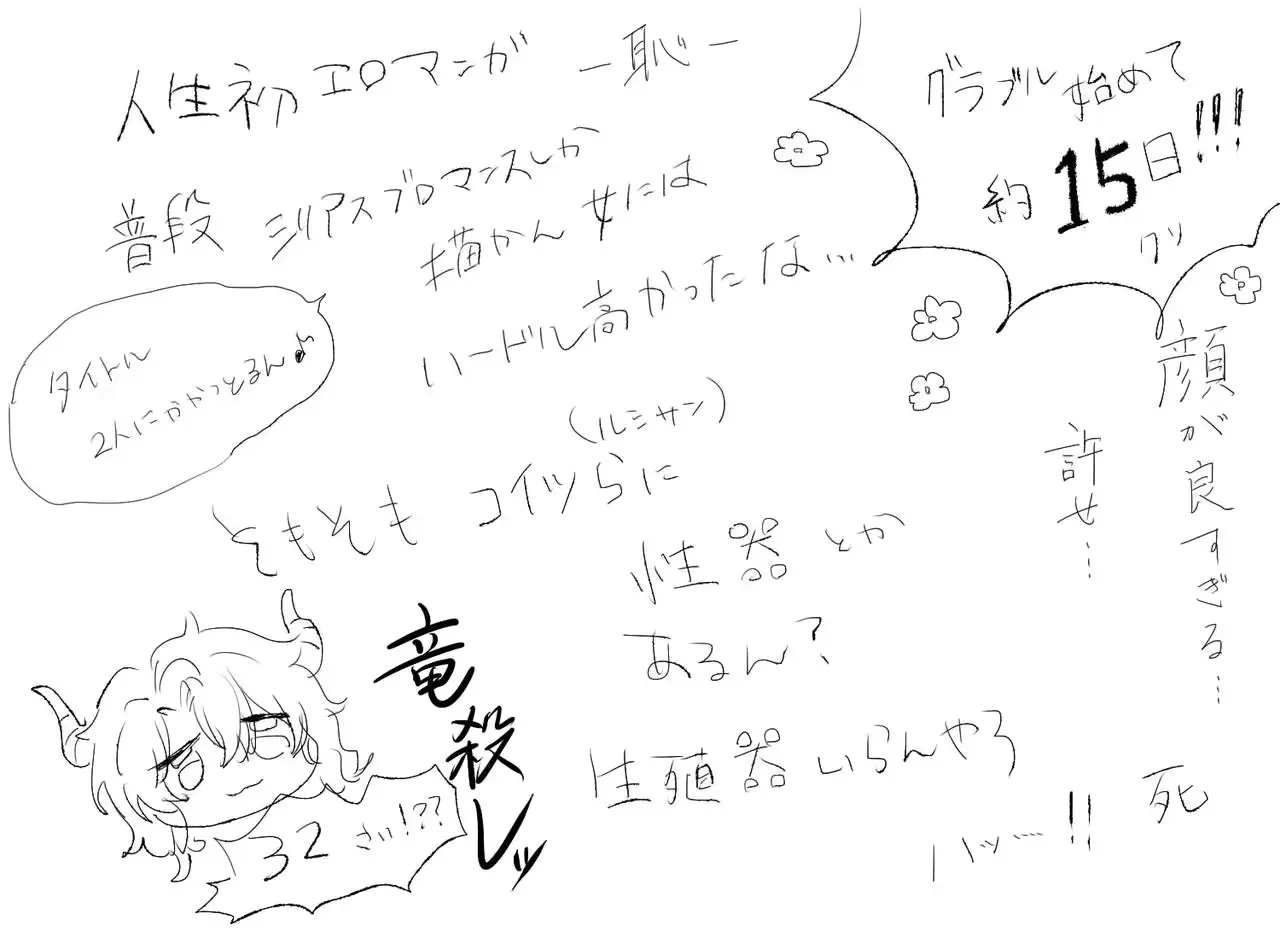 人生初エロマンガ -恥-
普段シリアスブロマンスしか
描かん女には
ハードル高かったな…
グラブル始めて
約15日!!!
グッ
タイトル
2人にかかっとるん♪
(ルシサン)
そもそもコイツらに
性器とか
あるん?
生殖器いらんやろ
ハッ……!!
顔が良すぎる…
許せ…
死
竜殺しッ
32さい!??